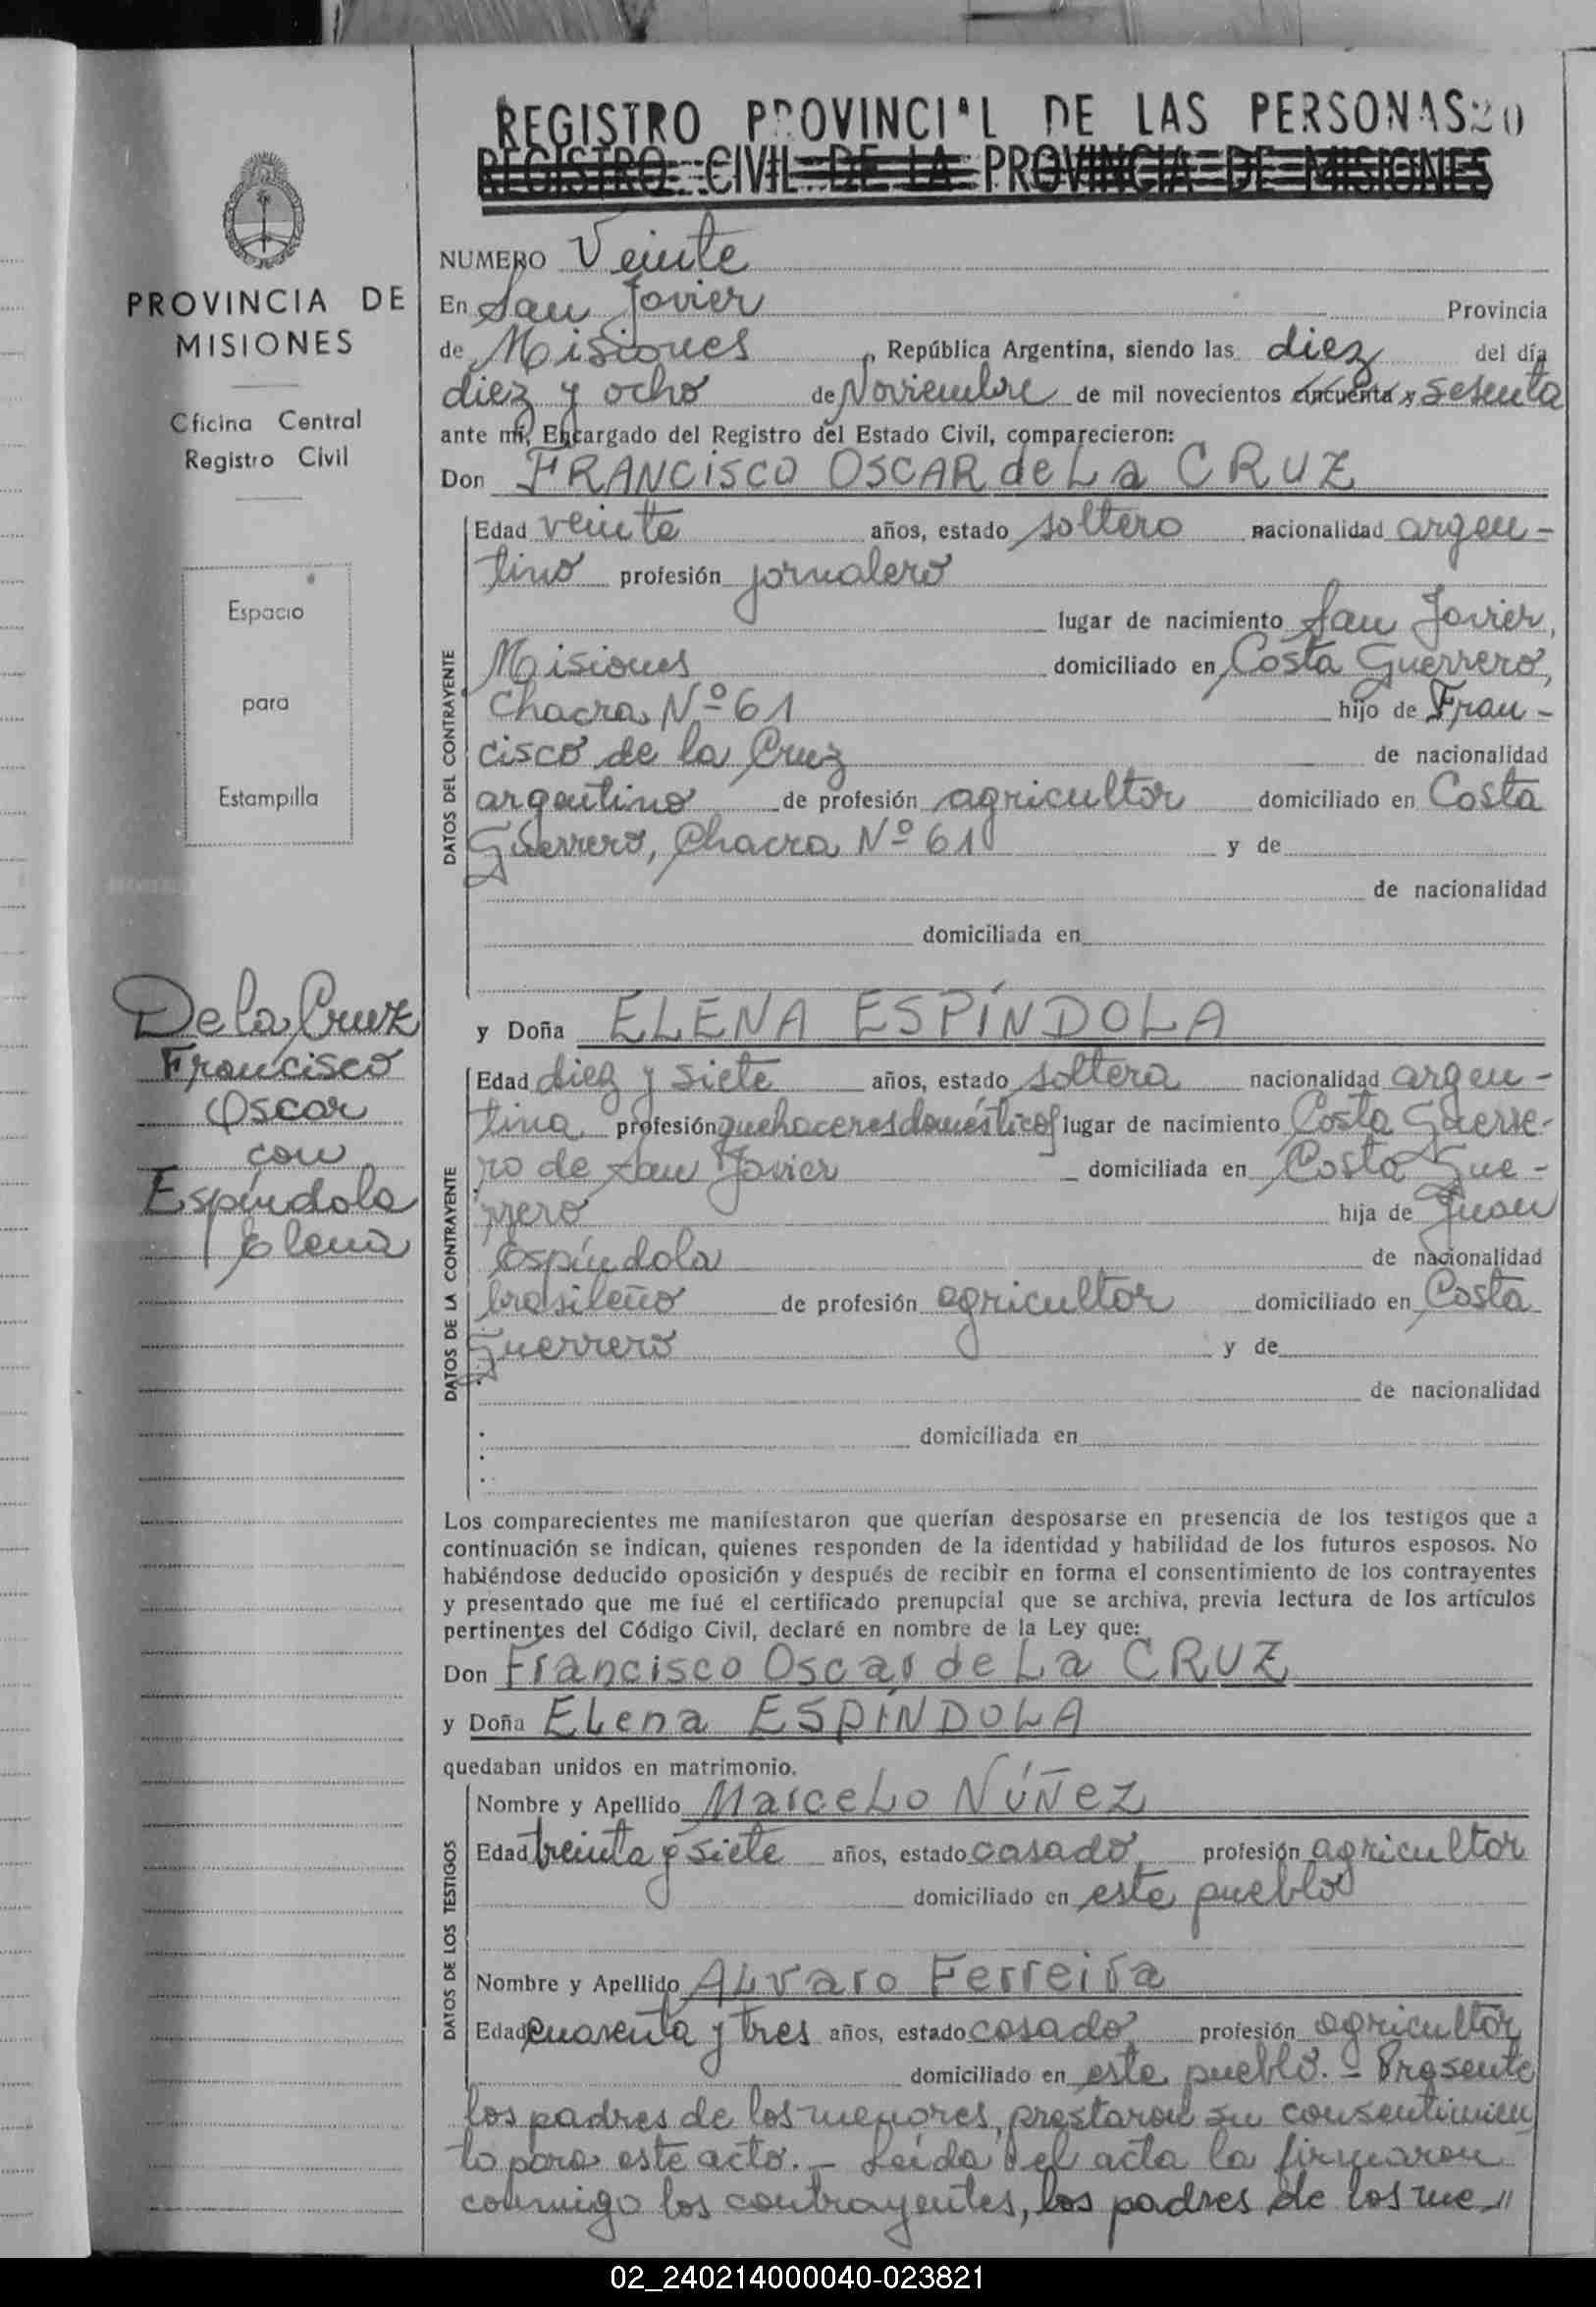 REGISTRO PROVINCIAL DE LAS PERSONAS 20
REGISTRO CIVIL DE LA PROVINCIA DE MISIONES
PROVINCIA DE
MISIONES
Oficina Central
Registro Civil
Espacio
para
Estampilla
De la Cruz
Francisco
Oscar
con
Espíndola
Elena
NUMERO Veinte
En San Javier Provincia
de Misiones, República Argentina, siendo las diez del día
diez y ocho de Noviembre de mil novecientos cincuenta y sesenta
ante mí, Encargado del Registro del Estado Civil, comparecieron:
Don FRANCISCO OSCAR de La CRUZ
DATOS DEL CONTRAYENTE
Edad veinte años, estado soltero nacionalidad argen-
tino profesión jornalero
lugar de nacimiento San Javier,
Misiones domiciliado en Costa Guerrero,
Chacra Nº 61 hijo de Fran-
cisco de la Cruz de nacionalidad
argentino de profesión agricultor domiciliado en Costa
Guerrero, Chacra Nº 61 y de
de nacionalidad
domiciliada en
y Doña ELENA ESPÍNDOLA
DATOS DE LA CONTRAYENTE
Edad diez y siete años, estado soltera nacionalidad argen-
tina profesión quehaceres domésticos lugar de nacimiento Costa Guerre-
ro de San Javier domiciliada en Costa Gue-
rrero hija de Juan
Espíndola de nacionalidad
brasileño de profesión agricultor domiciliado en Costa
Guerrero y de
de nacionalidad
domiciliada en
Los comparecientes me manifestaron que querían desposarse en presencia de los testigos que a
continuación se indican, quienes responden de la identidad y habilidad de los futuros esposos. No
habiéndose deducido oposición y después de recibir en forma el consentimiento de los contrayentes
y presentado que me fué el certificado prenupcial que se archiva, previa lectura de los artículos
pertinentes del Código Civil, declaré en nombre de la Ley que:
Don Francisco Oscar de La CRUZ
y Doña Elena ESPÍNDOLA
quedaban unidos en matrimonio.
DATOS DE LOS TESTIGOS
Nombre y Apellido Marcelo NÚÑEZ
Edad treinta y siete años, estado casado profesión agricultor
domiciliado en este pueblo
Nombre y Apellido Alvaro Ferreira
Edad cuarenta y tres años, estado casado profesión agricultor
domiciliado en este pueblo. - Presente
los padres de los menores, prestaron su consentimien
to para este acto. - Leída el acta la firmaron
conmigo los contrayentes, los padres de los me //
02_240214000040-023821